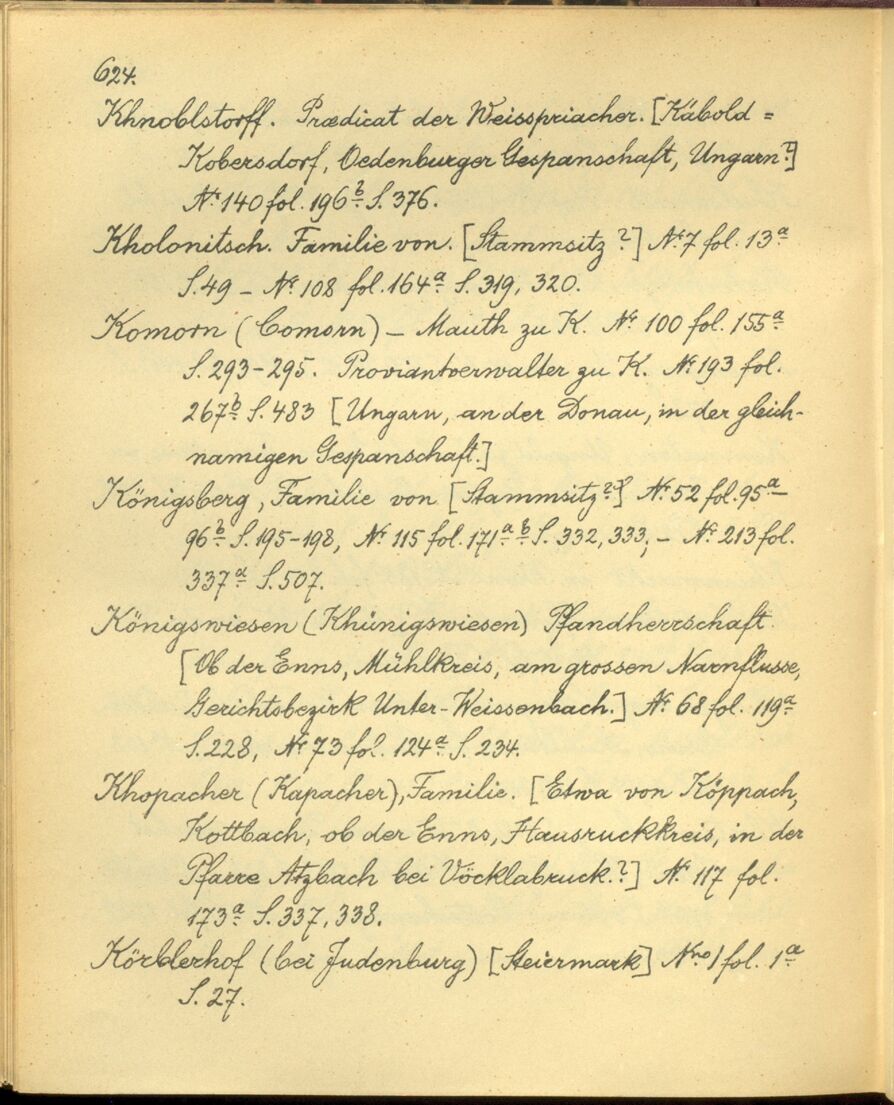 624.
Khnoblstorff. Prædicat der Weisspriacher. [Kábold =
Kobersdorf, Oedenburger Gespanschaft, Ungarn?]
Nr. 140 fol. 196b S. 376.
Kholonitsch. Familie von. [Stammsitz?] Nr. 7 fol. 13a
S. 49 – Nr. 108 fol. 164a S. 319, 320.
Komorn (Comorn) – Mauth zu K. Nr. 100 fol. 155a
S. 293–295. Proviantverwalter zu K. Nr. 193 fol.
267b S. 483 [Ungarn, an der Donau, in der gleich-
namigen Gespanschaft.]
Königsberg, Familie von [Stammsitz?] Nr. 52 fol. 95a–
96b S. 195–198, Nr. 115 fol. 171a b S. 332, 333, – Nr. 213 fol.
337a S. 507.
Königswiesen (Khünigswiesen) Pfandherrschaft.
[Ob der Enns, Mühlkreis, am grossen Narnflusse,
Gerichtsbezirk Unter-Weissenbach.] Nr. 68 fol. 119a
S. 228, Nr. 73 fol. 124a S. 234.
Khopacher (Kapacher), Familie. [Etwa von Köppach,
Kottbach, ob der Enns, Hausruckkreis, in der
Pfarre Atzbach bei Vöcklabruck.?] Nr. 117 fol.
173a S. 337, 338.
Körblerhof (bei Judenburg) [Steiermark] Nro. 1 fol. 1a
S. 27.